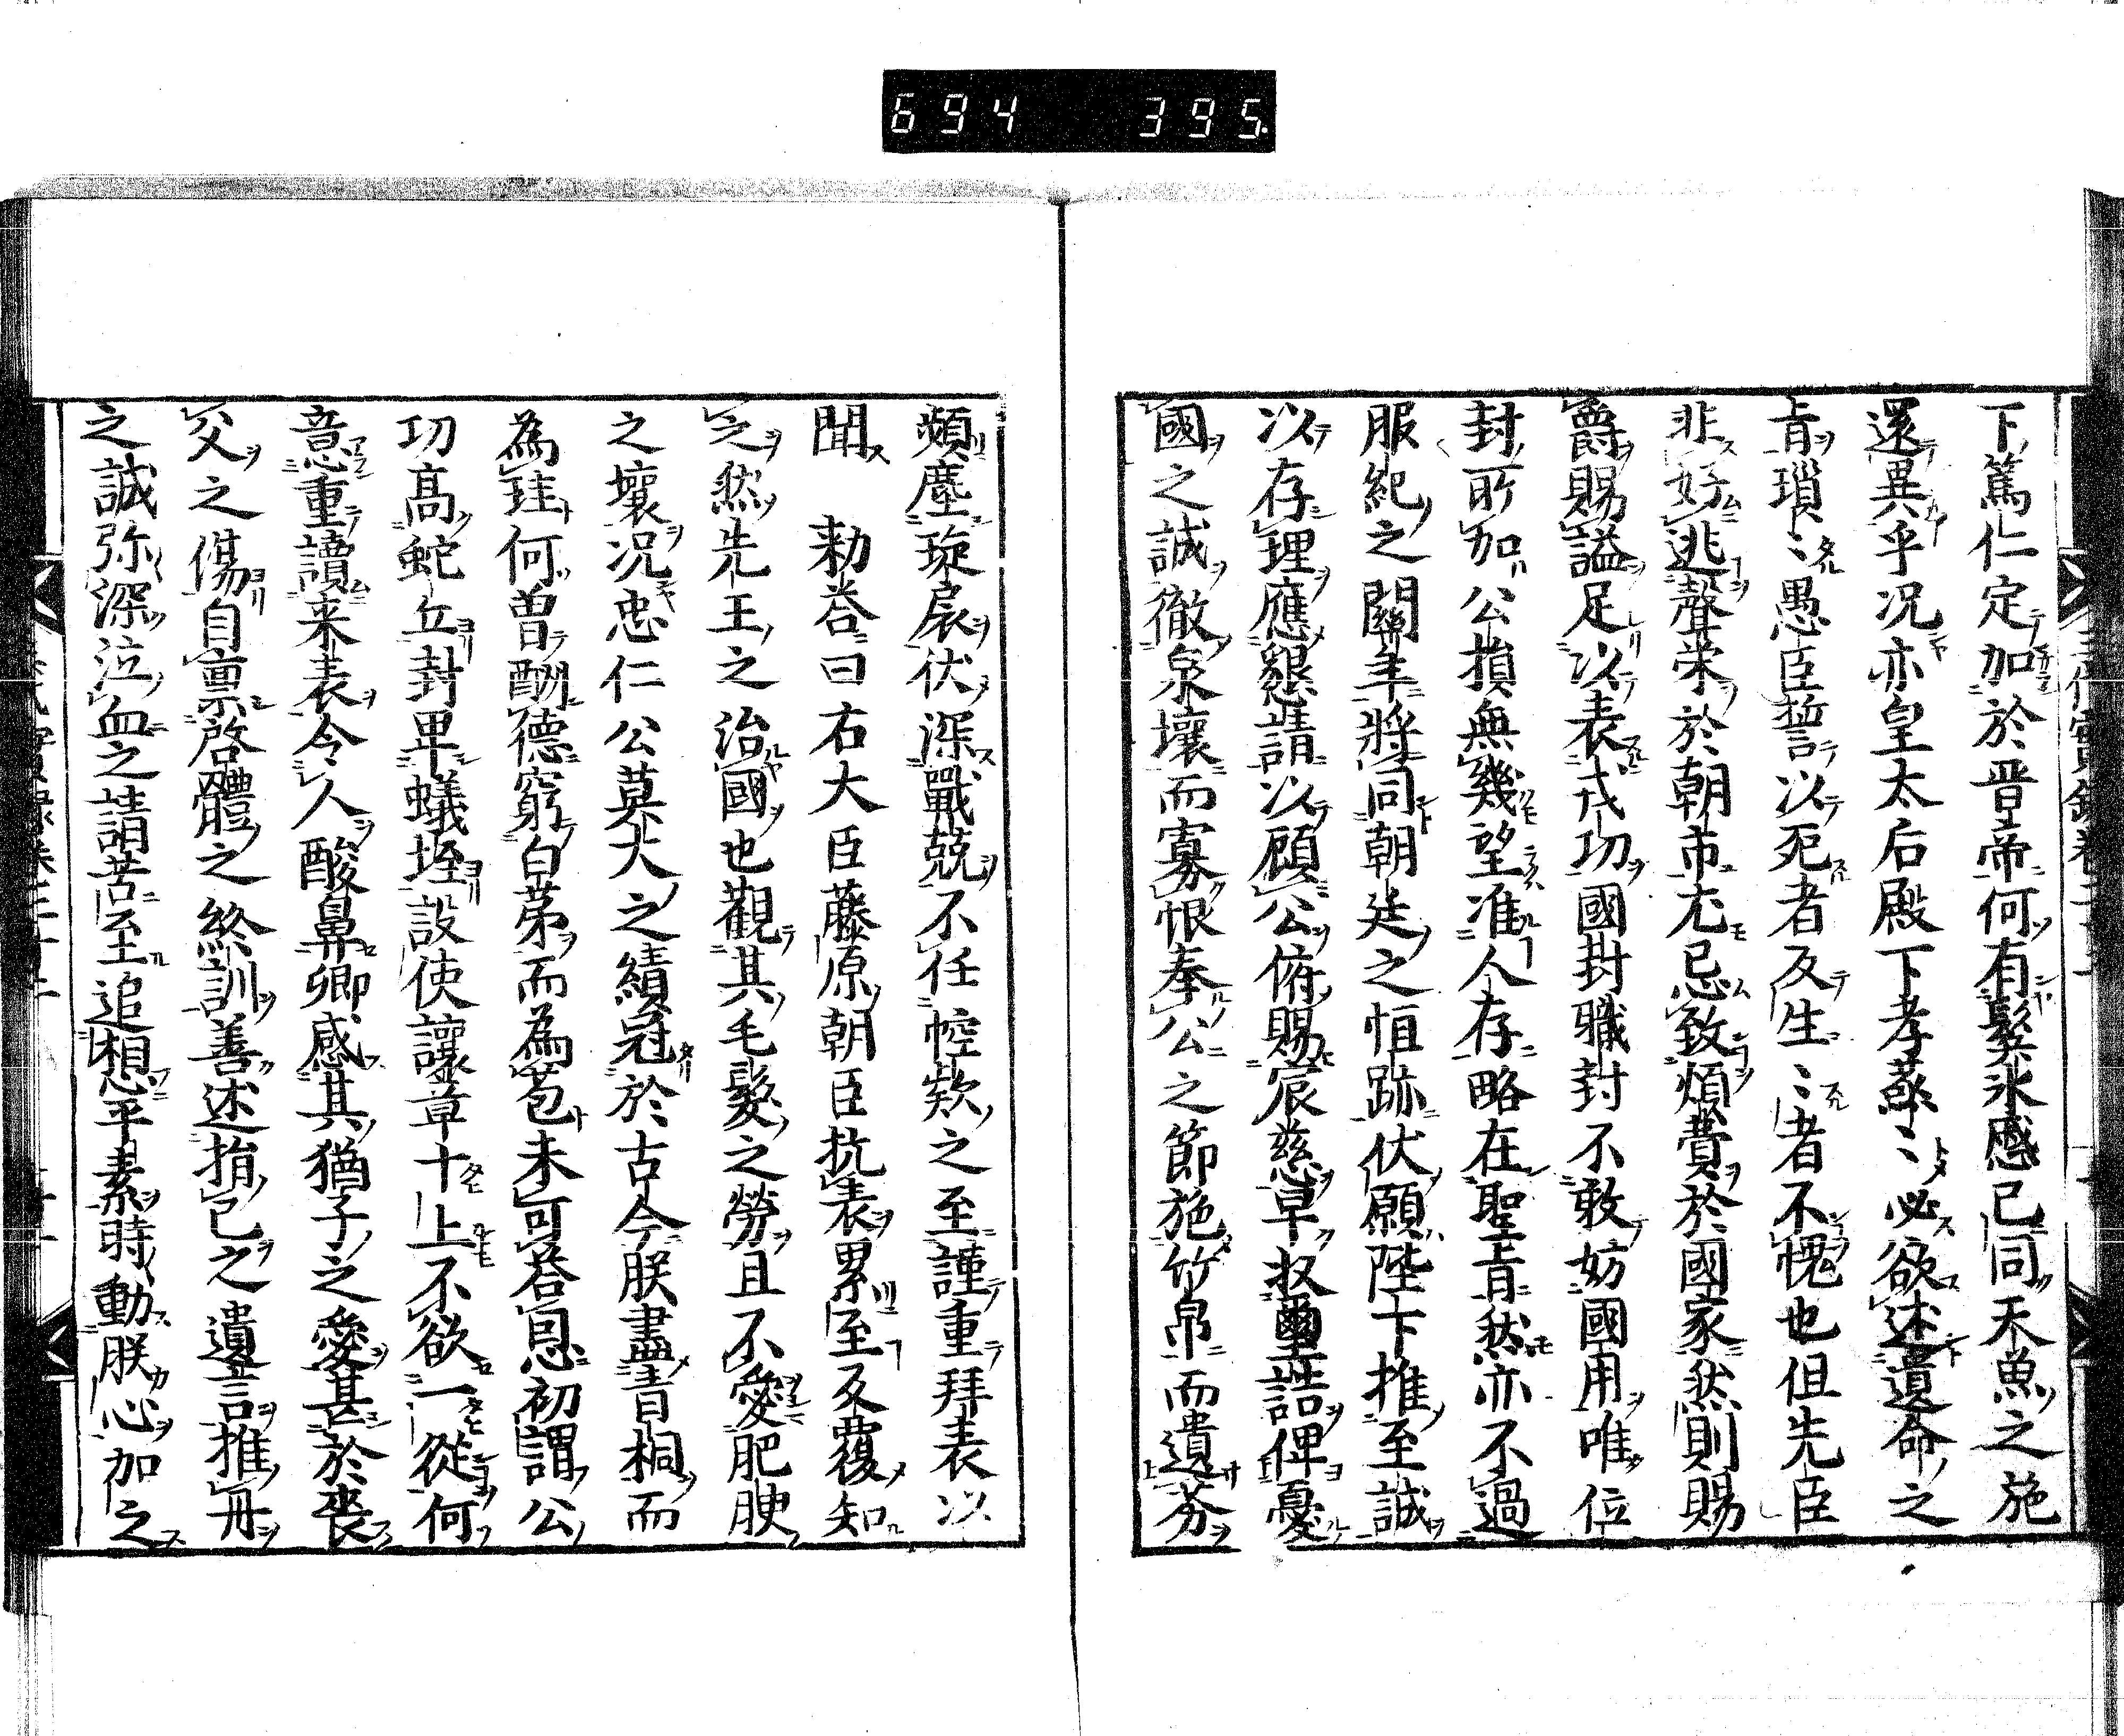 694 395
下篤仁定加於晋帝何有髮氷感已同天魚之施
還異乎况亦皇太后殿下孝蒸〻必欲述遺命之
㫖瑣〻愚臣誓以死者反生〻者不愧也但先臣
非好逃聲栄於朝市尤忌致煩費於國家然則賜
爵賜謚足以表戎功國封職封不敢妨國用唯位
封所加公損無幾望准人存略在聖㫖然亦不過
服紀之關年將同朝廷之恒跡伏願陛下推至誠
以存理應懇請以顧公俯賜宸慈早扠璽誥俾憂
國之誠徹泉壤而寡恨奉公之節施竹帛而遺芬
頻塵琁扆伏深戰兢不任悾欵之至謹重拜表以
聞 勅荅曰右大臣藤原朝臣抗表累至反覆知
之然先王之治國也觀其毛髮之勞且不愛肥腴
之壤况忠仁公莫大之績冠於古今朕盡青桐而
為珪何曽酬德窮白茅而為苞未可荅恩初謂公
功高蛇丘封卑蟻垤設使讓章十上不欲一從何
意重讀来表令人酸鼻卿感其猶子之愛甚於喪
父之傷自禀啓體之終訓善述捐己之遺言推丹
之誠弥深泣血之請苦至追想平素時動朕心加之